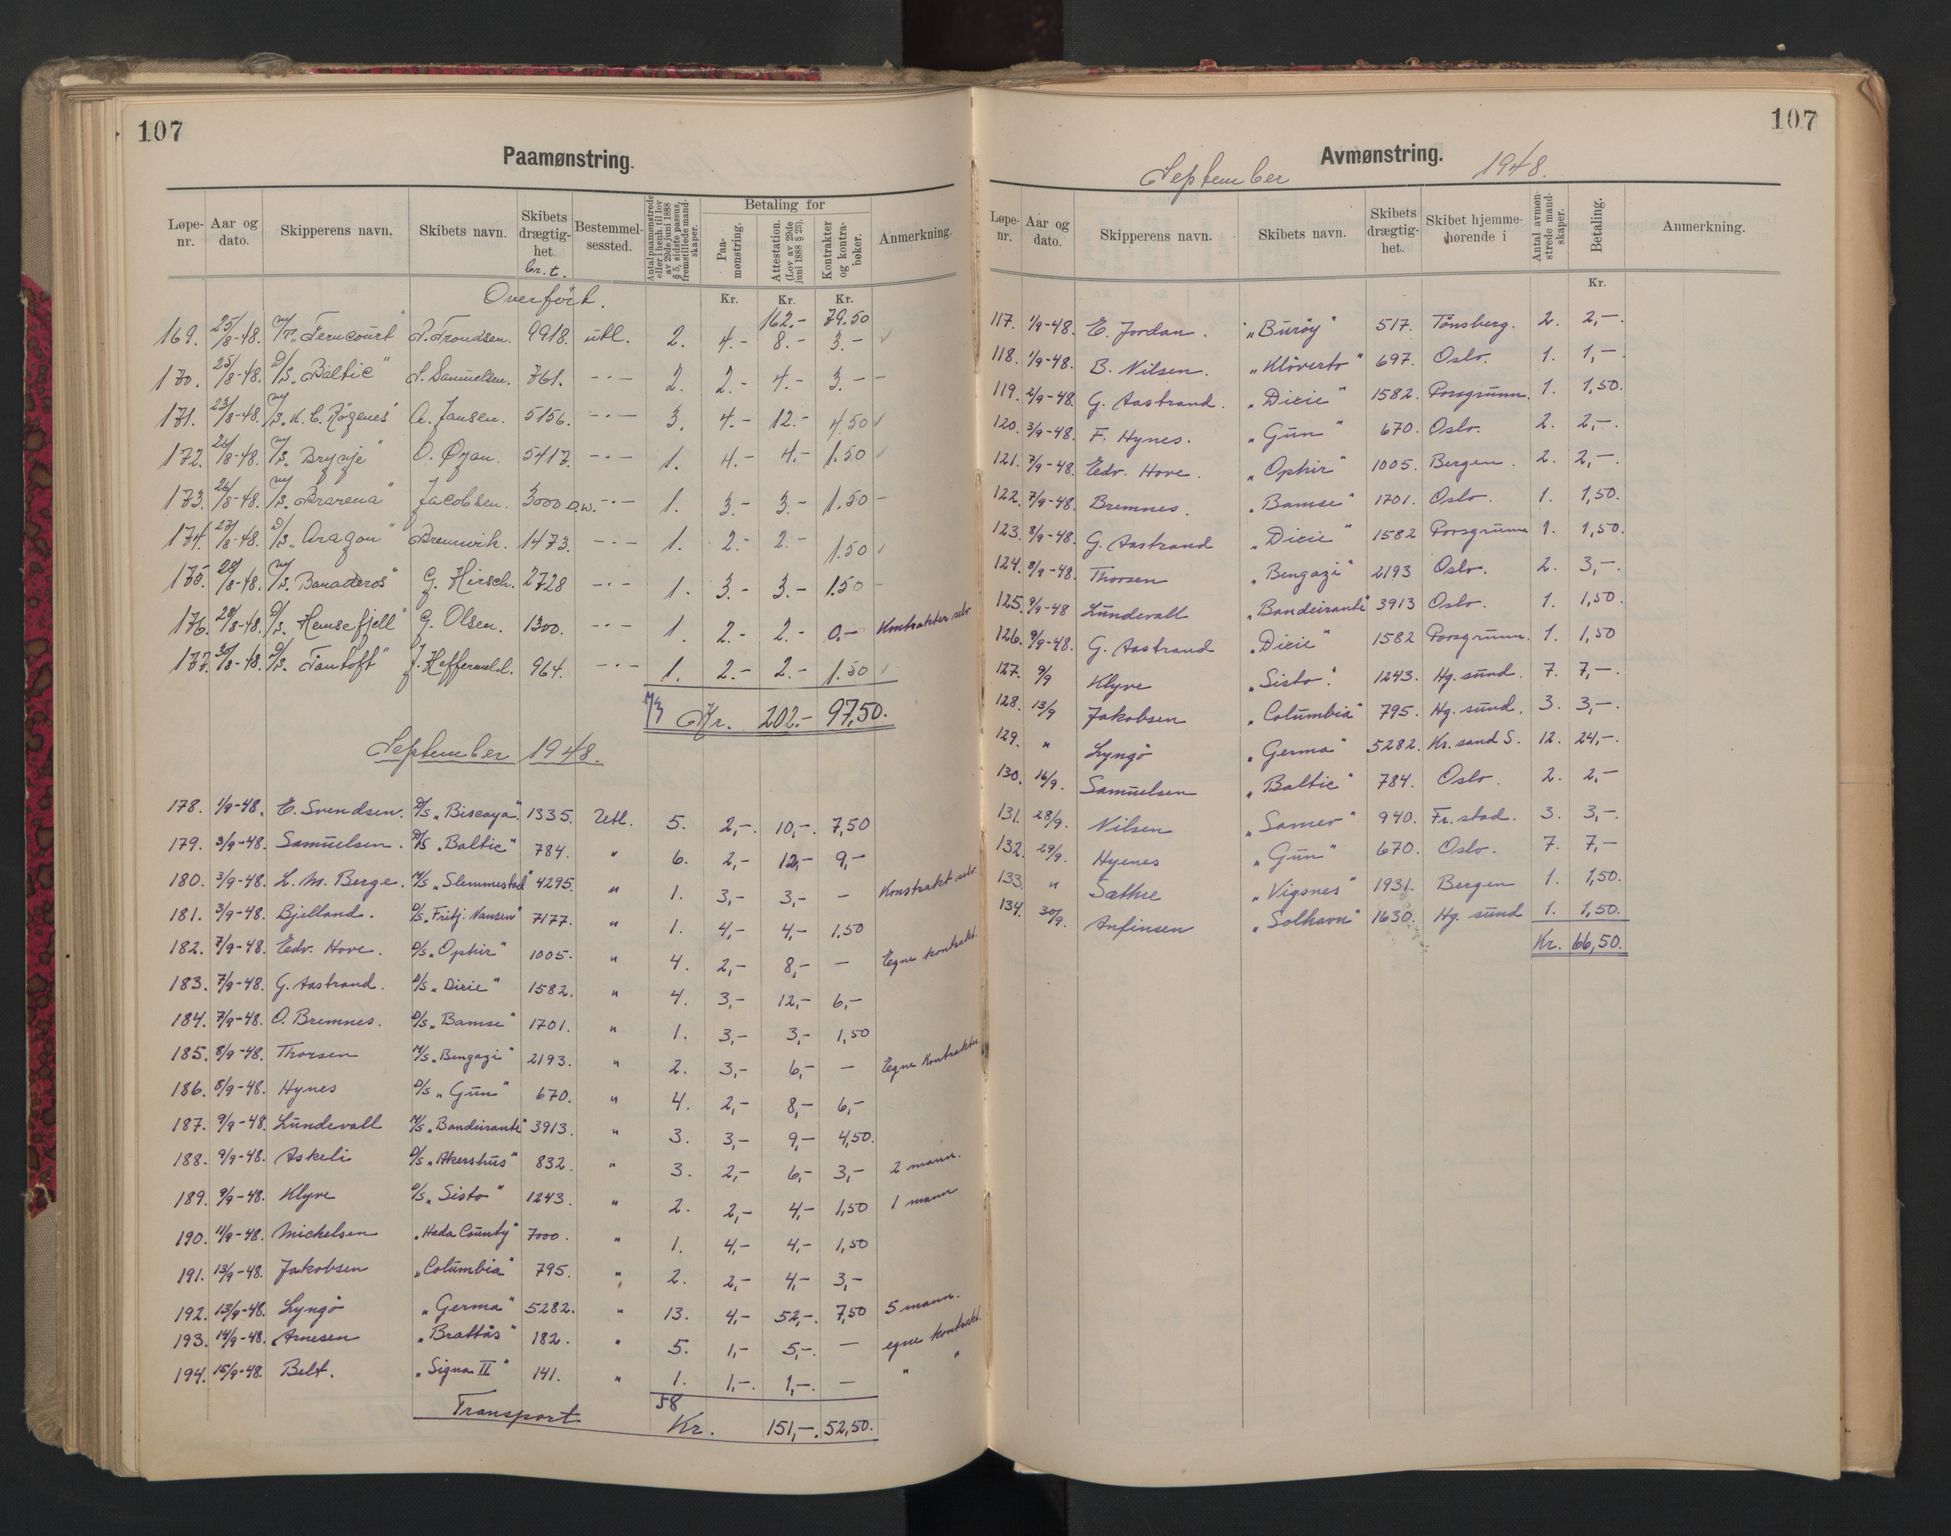 107
Paamønstring.
Løpe-nr. Aar og dato. Skipperens navn. Skibets navn. Skibets drægtig-het. br.t. Bestemmel-sessted. Antal paamønstrede eller i henh. til lov av 29de juni 1888 § 5, sidste passus, fremstillede mand-skaper. Betaling for Paa-mønstring. Attestation. (Lov av 29de juni 1888 § 23). Kontrakter og kontra-bøker. Anmerkning.
Kr. Kr. Kr.
Overført. 162.- 79.50
169. 25/8-48. M/T. "Ferncourt" Trondsen. 9918. utl. 2. 4.- 8.- 3.-
170. 25/8-48. D/S. "Baltic" S. Samuelsen. 761. -"- 2. 2.- 4.- 3.-
171. 23/8-48. M/S. K. C. Rögenes" A. Jansen. 5156. -"- 3. 4.- 12.- 4.50
172. 26/8-48. M/S. 5417. -"- 1. 4.- 4.- 1.50
173. 26/8-48. M/S. Jacobsen. 3000 D.W. -"- 1. 3.- 3.- 1.50
174. 27/8-48. D/S. "Aragon" Bremvik. 1473. -"- 1. 2.- 2.- 1.50
175. 28/8-48. M/S. "Banaderos" G. Hirsch. 2728 -"- 1. 3.- 3.- 1.50
176. 28/8-48. D/S. "Hemsefjell" G. Olsen. 1300. -"- 1. 2.- 2.- 0.- Kontrakter selv
177. 30/8-48. D/S. "Fantoft" J. 964. -"- 1. 2.- 2.- 1.50
Kr. 202.- 97,50.
September 1948.
178. 1/9-48. E. Svendsen. D/S "Biscaya" 1335. Utl. 5. 2,-. 10,-. 7,50
179. 3/9-48. Samuelsen. D/S "Baltic" 784. " 6. 2,- 12,- 9,-
180. 3/9-48. L. M. Berge. M/S "Slemmestad" 4295. " 1. 3,- 3,- - Konstrakt selv.
181. 3/9-48. Bjelland. D/S "Fritj. Nansen" 7177. " 1. 4,- 4,- 1.50
182. 7/9-48. Edv. Hove. D/S "Ophir" 1005. " 4. 2,- 8,- - Egne kontrakt.
183. 7/9-48. G. Aastrand. D/S "Dixie" 1582. " 4. 3,- 12,- 6,-
184. 7/9-48. O. Bremnes. D/S "Bamse" 1701. " 1. 3,- 3,- 1,50
185. 8/9-48. Thorsen M/S "Bengazi" 2193. " 2. 3,- 6,- - Egne Kontrakter
186. 8/9-48. Hynes D/S "Gun" 670. " 4. 2,- 8,- 6,-
187. 9/9-48. Lundevall M/S "Bandeirante" 3913. " 3. 3,- 9,- 4,50.
188. 9/9-48. Askeli D/S "Akershus" 832. " 3. 2,- 6,- 3,- 2 mann.
189. 9/9-48. Klyve D/S "Sisto" 1243. " 2. 2,- 4,- 1,50 1 mann
190. 11/9-48. Michelsen "Hada County" 7000. " 1. 4,- 4,- 1,50
191. 13/9-48. Jakobsen "Columbia" 795. " 2. 2,- 4,- 3,-
192. 13/9-48. Lyngö "Germa" 5282. " 13. 4,- 52,-. 7,50 5 mann.
193. 14/9-48. Arnesen "Brattås" 182. " 5. 1,- 5,-. - egne kontrakt.
194. 15/9-48. Belt. "Signa II" 141. " 1. 1,-. 1,-. - " "
58
Transport Kr. 151,-. 52,50.
107
Avmønstring.
September 1948.
Løpe-nr. Aar og dato. Skipperens navn. Skibets navn. Skibets drægtig-het. Skibet hjemme-hørende i Antal avmøn-strede mand-skaper. Betaling. Anmerkning.
Kr.
117. 1/9-48. E. Jordan. "Burøy" 517. Tönsberg. 2. 2,-.
118. 1/9-48. B. Nilsen. "Klöverto" 697. Oslo. 1. 1,-.
119. 2/9-48. G. Aastrand. "Dixie" 1582. Porsgrunn. 1. 1,50.
120. 3/9-48. F. Hynes. "Gun" 670. Oslo. 2. 2,-.
121. 7/9-48. Edv. Hove. "Ophir" 1005. Bergen. 2. 2,-.
122. 7/9-48. Bremnes. "Bamse" 1701. Oslo. 1. 1,50.
123. 8/9-48. G. Aastrand "Dixie" 1582 Porsgrunn 1. 1,50.
124. 8/9-48. Thorsen "Bengazi" 2193 Oslo. 2. 3,-.
125. 9/9-48 Lundevall "Bandeirante" 3913 Oslo. 1. 1,50
126. 9/9-48. G. Aastrand "Dixie" 1582 Porsgrunn. 1. 1,50
127. 9/9 Klyve "Sisto". 1243. Hg. sund. 7. 7,-.
128. 13/9 Jakobsen "Columbia" 795. Hg. sund. 3. 3,-.
129. " Lyngö "Germa" 5282. Kr. sand S. 12. 24,-.
130. 16/9. Samuelsen "Baltic" 784. Oslo. 2. 2,-
131. 28/9. Nilsen "Samer" 940. Fr. stad. 3. 3,-.
132. 29/9. Hyenes "Gun" 670. Oslo. 7. 7,-
133. " Sæthre "Vigsnes" 1931. Bergen 1. 1,50.
134. 30/9. Anfinsen "Solhavn" 1630. Hg. sund 1. 1,50.
Kr. 66,50.